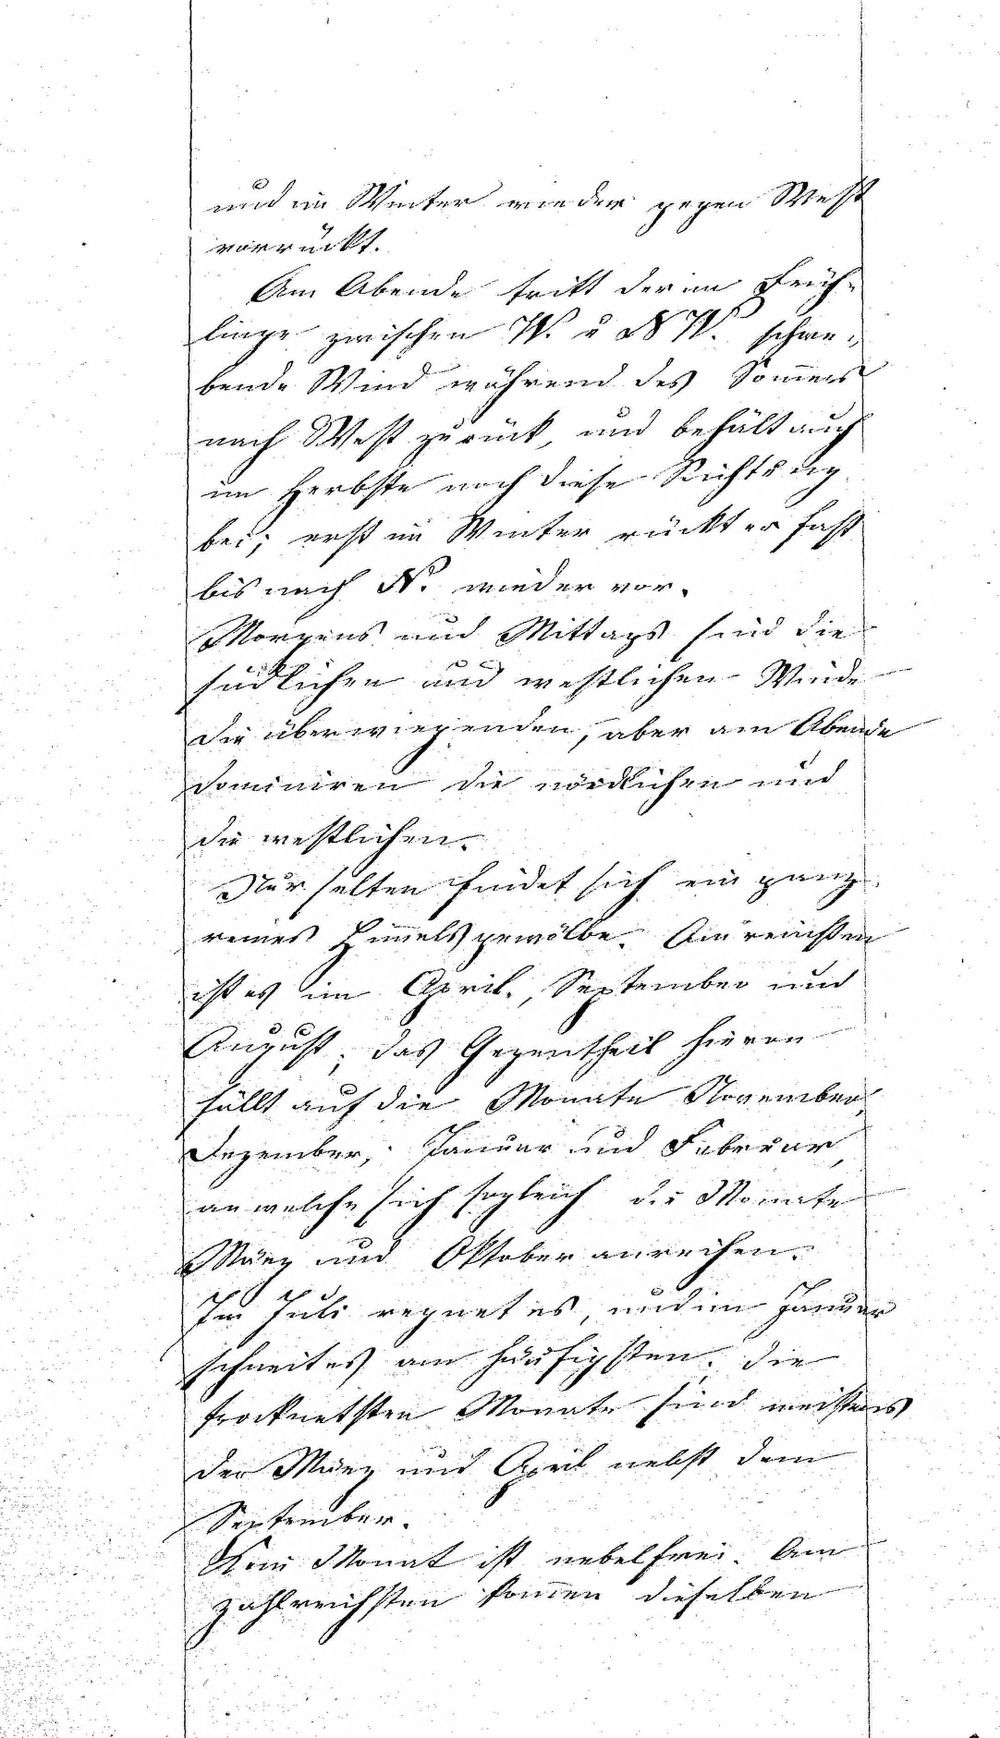 und im Winter wieder gegen West
vorrückt.
Am Abende tritt der im Früh-
linge zwischen W. u NW. schwe-
bende Wind während des Som̅ers
nach West zurück, und behält auch
im Herbste noch diese Richtung
bei; erst im Winter rückt er fast
bis nach N. wieder vor.
Morgens und Mittags sind die
südlichen und westlichen Winde
die überwiegenden, aber am Abende
dominiren die nördlichen und
die westlichen.
Nur selten findet sich ein ganz
reines Him̅elsgewölbe. Am reinsten
ist es im April, September und
August; das Gegentheil hievon
fällt auf die Monate November,
Dezember, Januar und Februar,
an welche sich sogleich die Monate
März und Oktober anreihen.
Im Juli regnet es, und im Januar
schneit es am häufigsten. die
trocknetsten Monate sind meistens
der März und April nebst dem
September.
Kein Monat ist nebelfrei. Am
zahlreichsten kom̅en dieselben